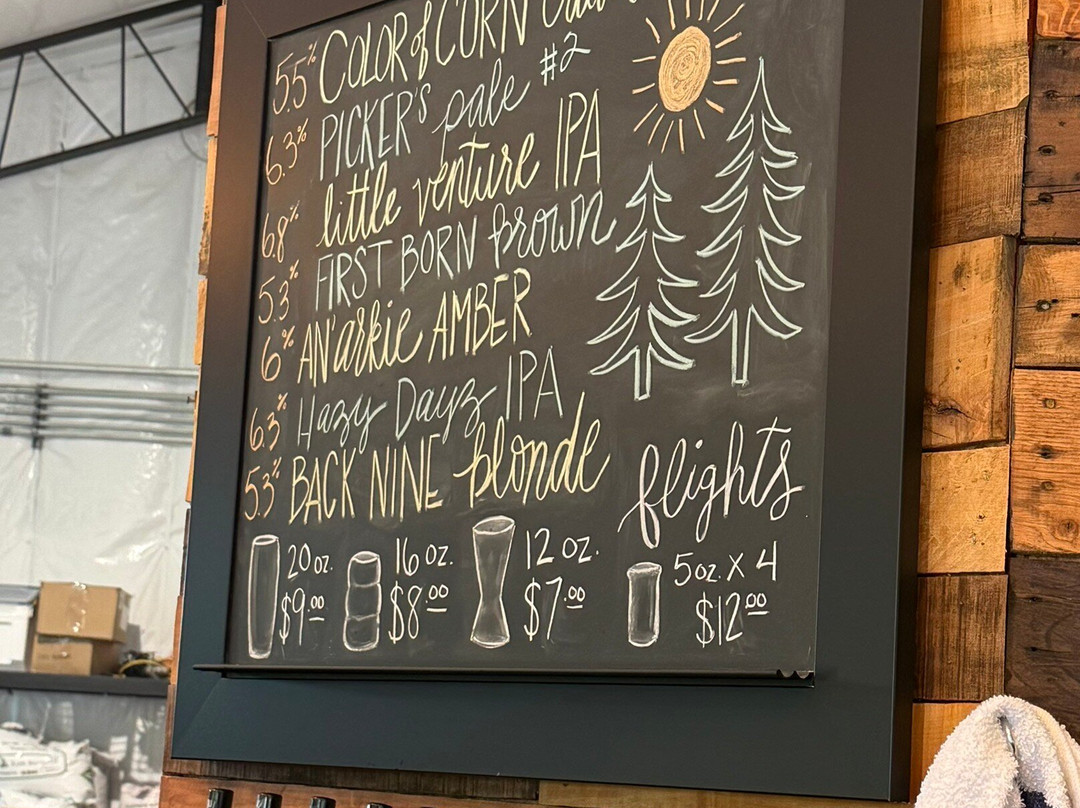 5.5% COLOR of CORN
6.3% PICKER'S pale #2
6.8% little venture IPA
5.3% FIRST BORN brown
6% AN'arkie AMBER
6.3% Hazy Dayz IPA
5.3% BACK NINE blonde
flights
20 oz. 16 oz. 12 oz. 5oz. x 4
$9.00 $8.00 $7.00 $12.00